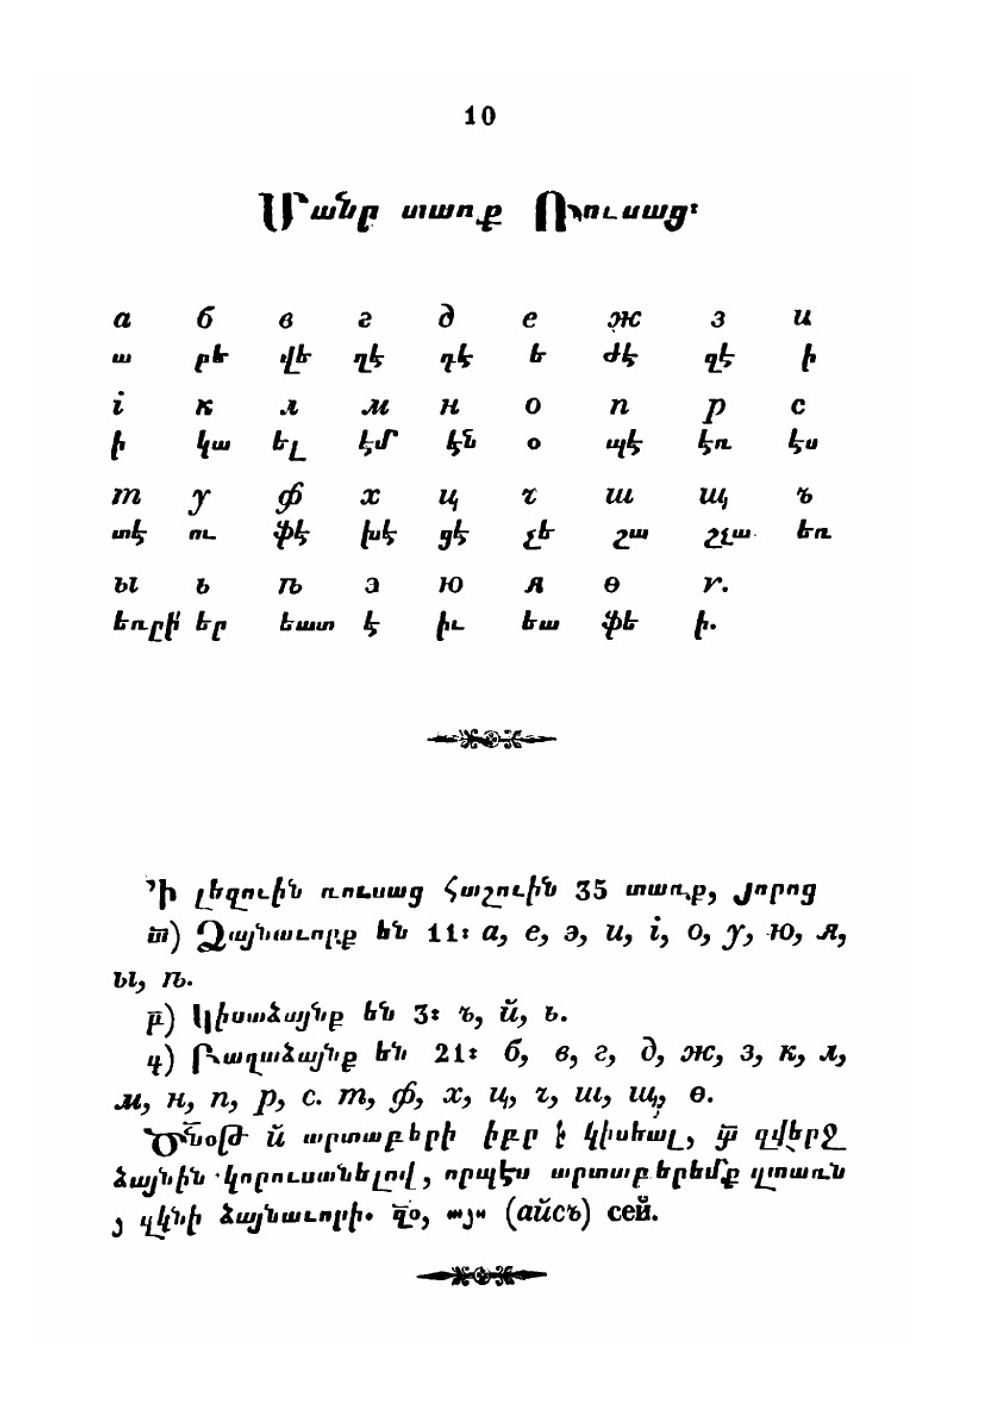 10
Մանր տառք Ռուսաց։
а б в г д е ж з и
ա բե վե ղէ դէ ե ժէ զէ ի
і к л м н о п р с
ի կա ել էմ էն օ պէ էռ էս
т у ф х ц ч ш щ ъ
տէ ու ֆէ խէ ցէ չե շա շչա եռ
ы ь ѣ э ю я ѳ ѵ.
եռըի եր եատ է իւ եա ֆե ի.
Ի լեզուին ռուսաց հաշուին 35 տառք, յորոց
ա) Ձայնաւորք են 11։ а, е, э, и, і, о, у, ю, я,
ы, ѣ.
բ) Կիսաձայնք են 3։ ъ, й, ь.
գ) Բաղաձայնք են 21։ б, в, г, д, ж, з, к, л,
м, н, п, р, с. т, ф, х, ц, ч, ш, щ, ѳ.
Ծնօթ й արտաբերի իբր է կիսեալ, զվերջ
ձայնին կորուսանելով, որպէս արտաբերեմք զտառն
յ զկնի ձայնաւորի. զօ, այս (айсъ) сей.